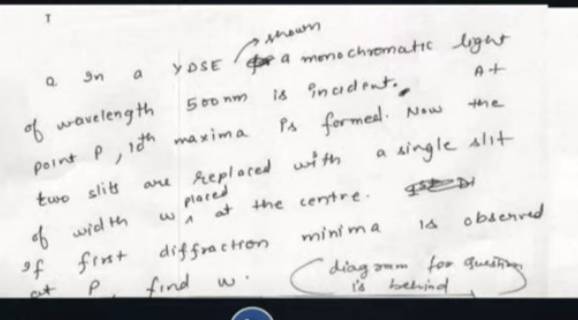 Q In a YDSE shown a monochromatic light
of wavelength 500nm is incident. At
point P, 10th maxima is formed. Now the
two slits are replaced with a single slit
of width w placed at the centre.
If first diffraction minima is observed
at P, find w.
(diagram for question
is behind)